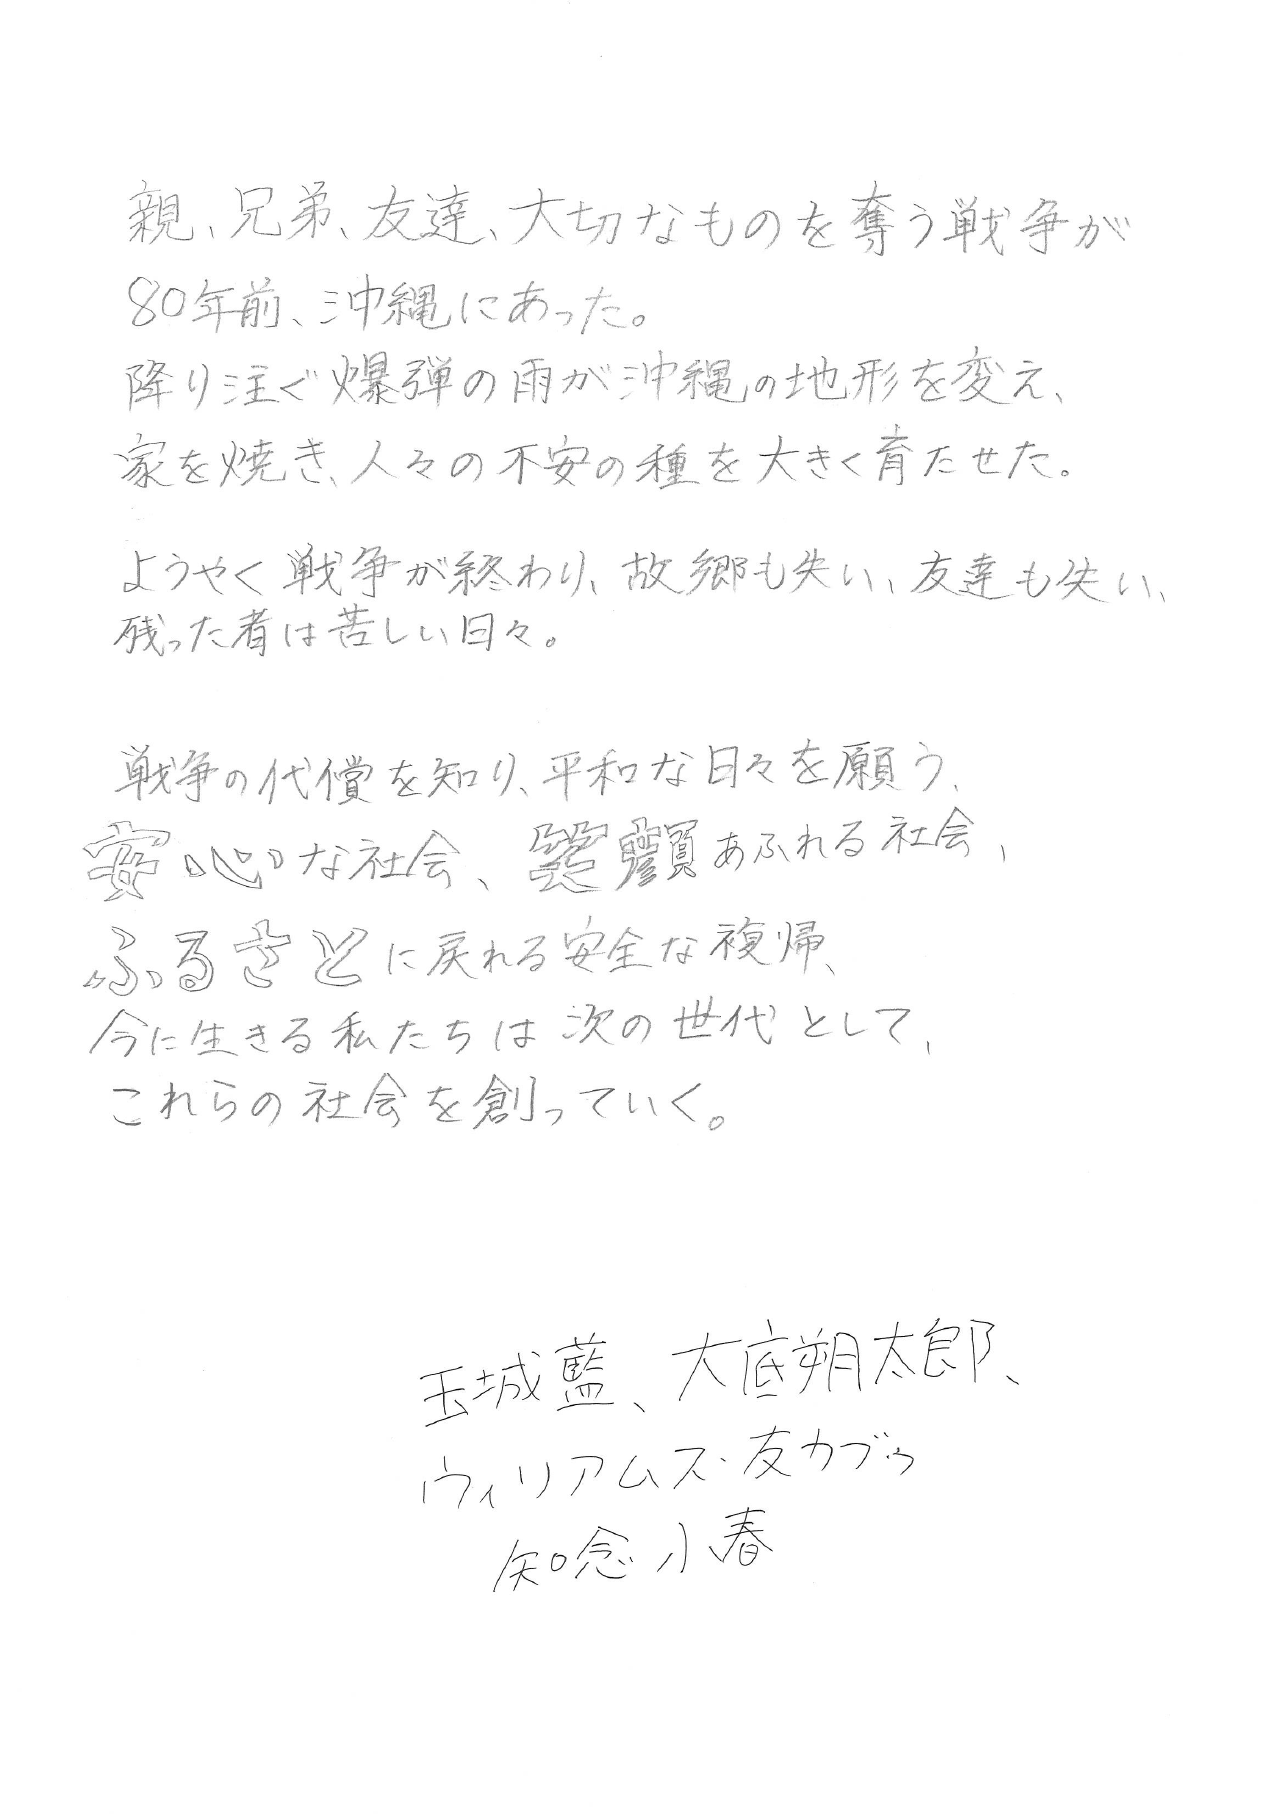 親、兄弟、友達、大切なものを奪う戦争が
80年前、沖縄にあった。
降り注ぐ爆弾の雨が沖縄の地形を変え、
家を焼き、人々の不安の種を大きく育たせた。
ようやく戦争が終わり、故郷も失い、友達も失い、
残った者は苦しい日々。
戦争の代償を知り、平和な日々を願う、
安心な社会、笑顔あふれる社会、
ふるさとに戻れる安全な複帰、
今に生きる私たちは次の世代として、
これらの社会を創っていく。
玉城藍、大底朔太郎、
ウィリアムス・友カブゥ
知念小春